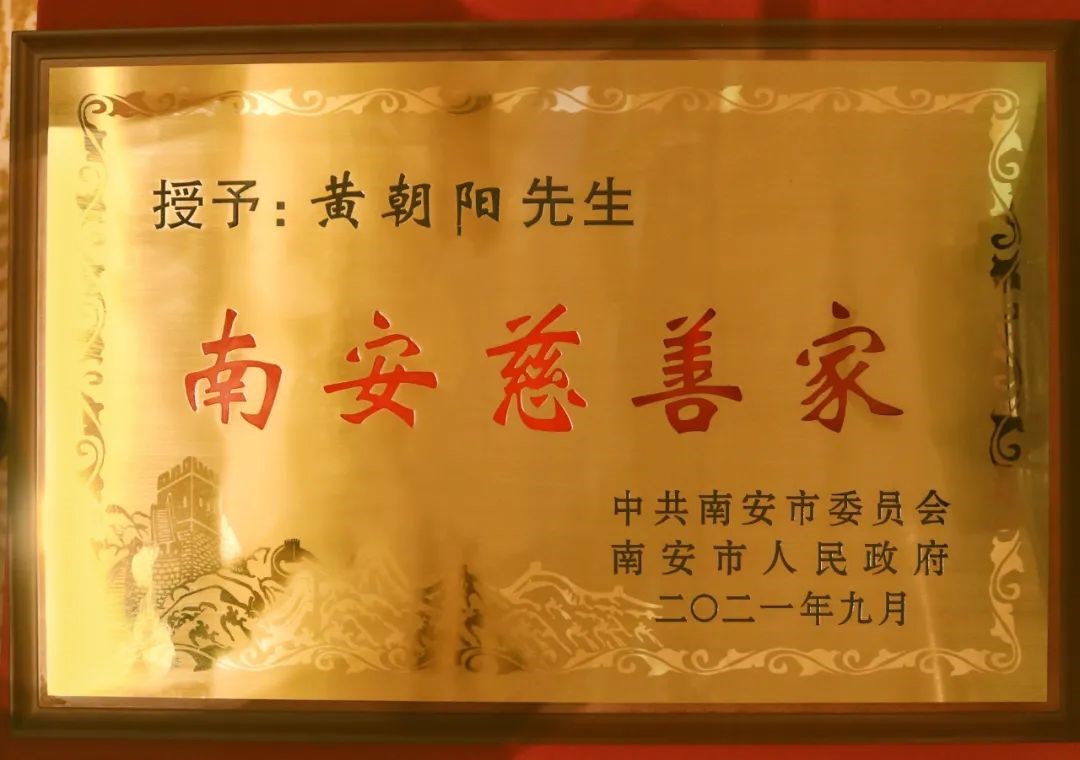 授予：黄朝阳先生
南安慈善家
中共南安市委员会
南安市人民政府
二〇二一年九月